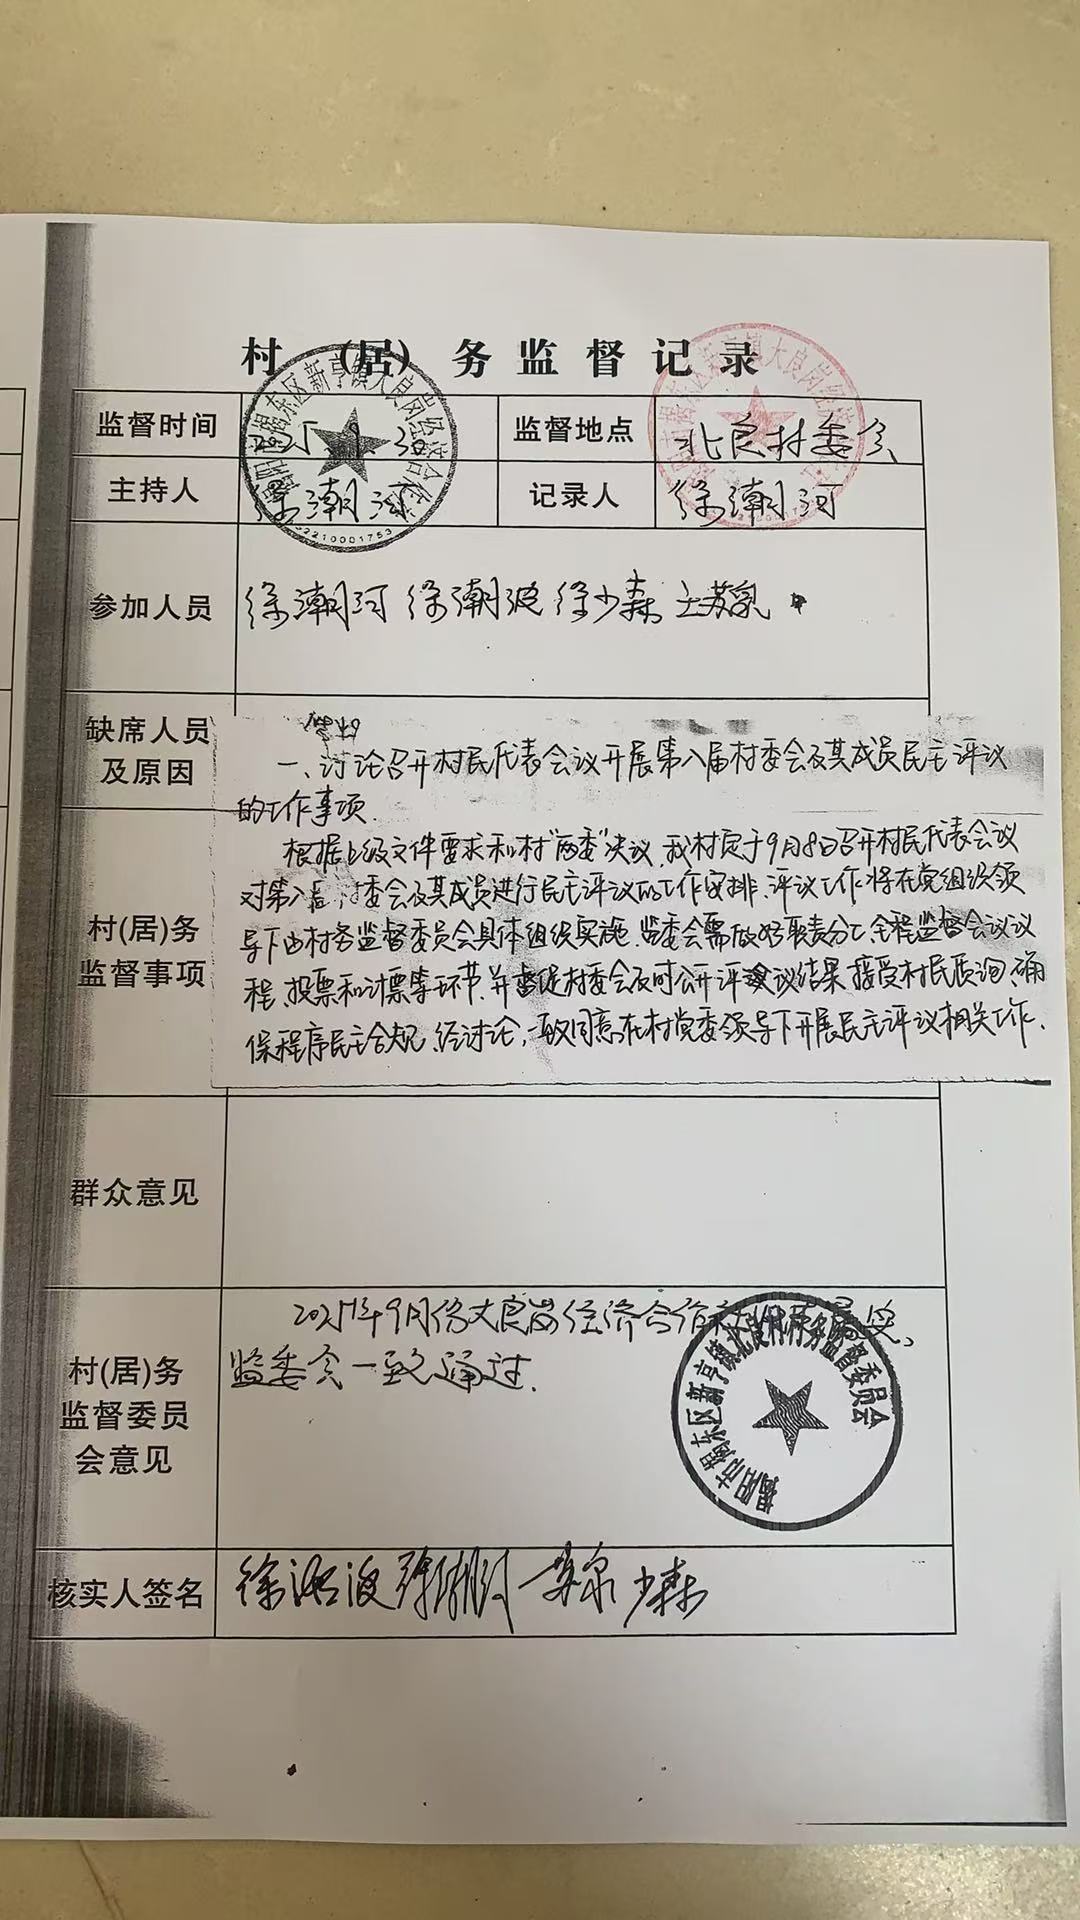 村（居）务监督记录
监督时间
监督地点 北良村委会
主持人 徐潮河
记录人 徐潮河
参加人员 徐潮河 徐潮波 徐少森
缺席人员
及原因
一、讨论召开村民代表会议开展第八届村委会及其成员民主评议
的工作事项.
村(居)务
监督事项
根据上级文件要求和村"两委"决议,我村定于9月8日召开村民代表会议
对第八届 村委会及其成员进行民主评议的工作安排.评议工作将在党组织领
导下由村务监督委员会具体组织实施.监委会需做好职责分工,全程监督会议议
程、投票和计票等环节.并督促村委会及时公开评议结果,接受村民质询,确
保程序民主合规.经讨论,一致同意在村党委领导下开展民主评议相关工作.
群众意见
村(居)务
监督委员
会意见
年9月份大良岗经济合作社
监委会一致通过.
核实人签名
揭东区新亨镇大良岗经济合作
2210001753
揭东区新亨镇大良岗经济
揭阳市揭东区新亨镇北良村村务监督委员会